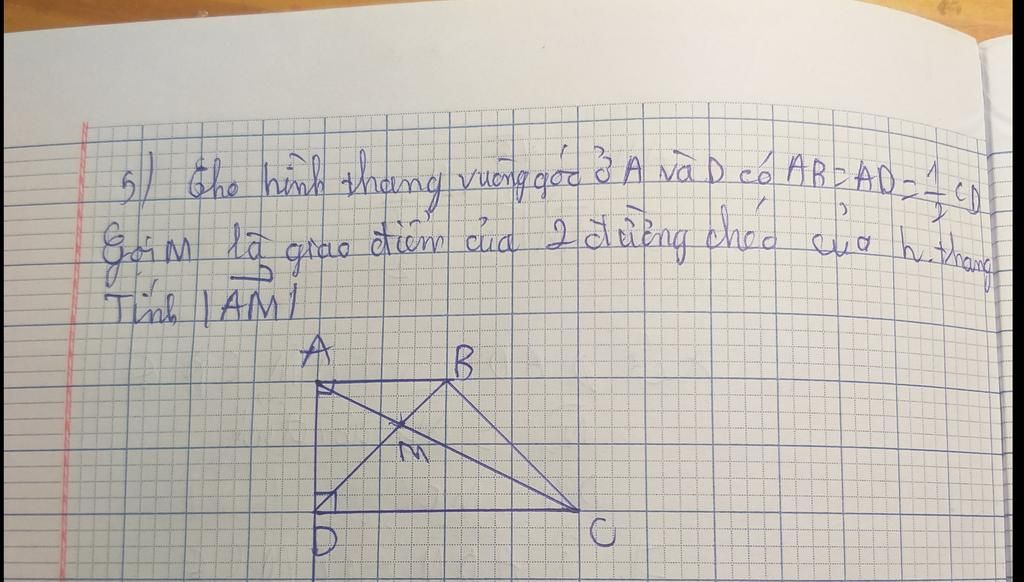 5) Cho hình thang vuông góc ở A và D có AB = AD = 1/2 CD
Gọi M là giao điểm của 2 đường chéo của h.thang
Tính |AM|
A
B
M
D
C